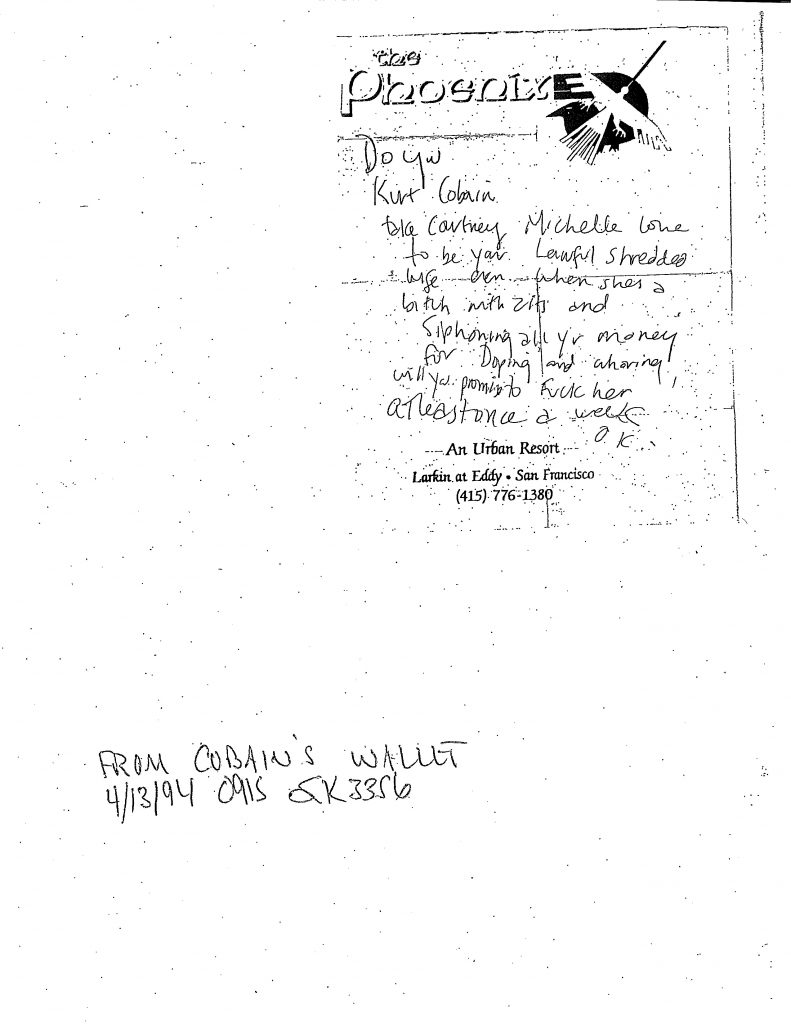 the
Phoenix
Do you
Kurt Cobain
take Cortney Michelle Love
to be your Lawful shredded
wife even when shes a
bitch with zits and
siphoning all yr money
for Doping and whoring
will you promise to Fuck her
atleast once a week
O K...
An Urban Resort
Larkin at Eddy • San Francisco
(415) 776-1380
FROM COBAIN'S WALLET
4/13/94 0915 3356